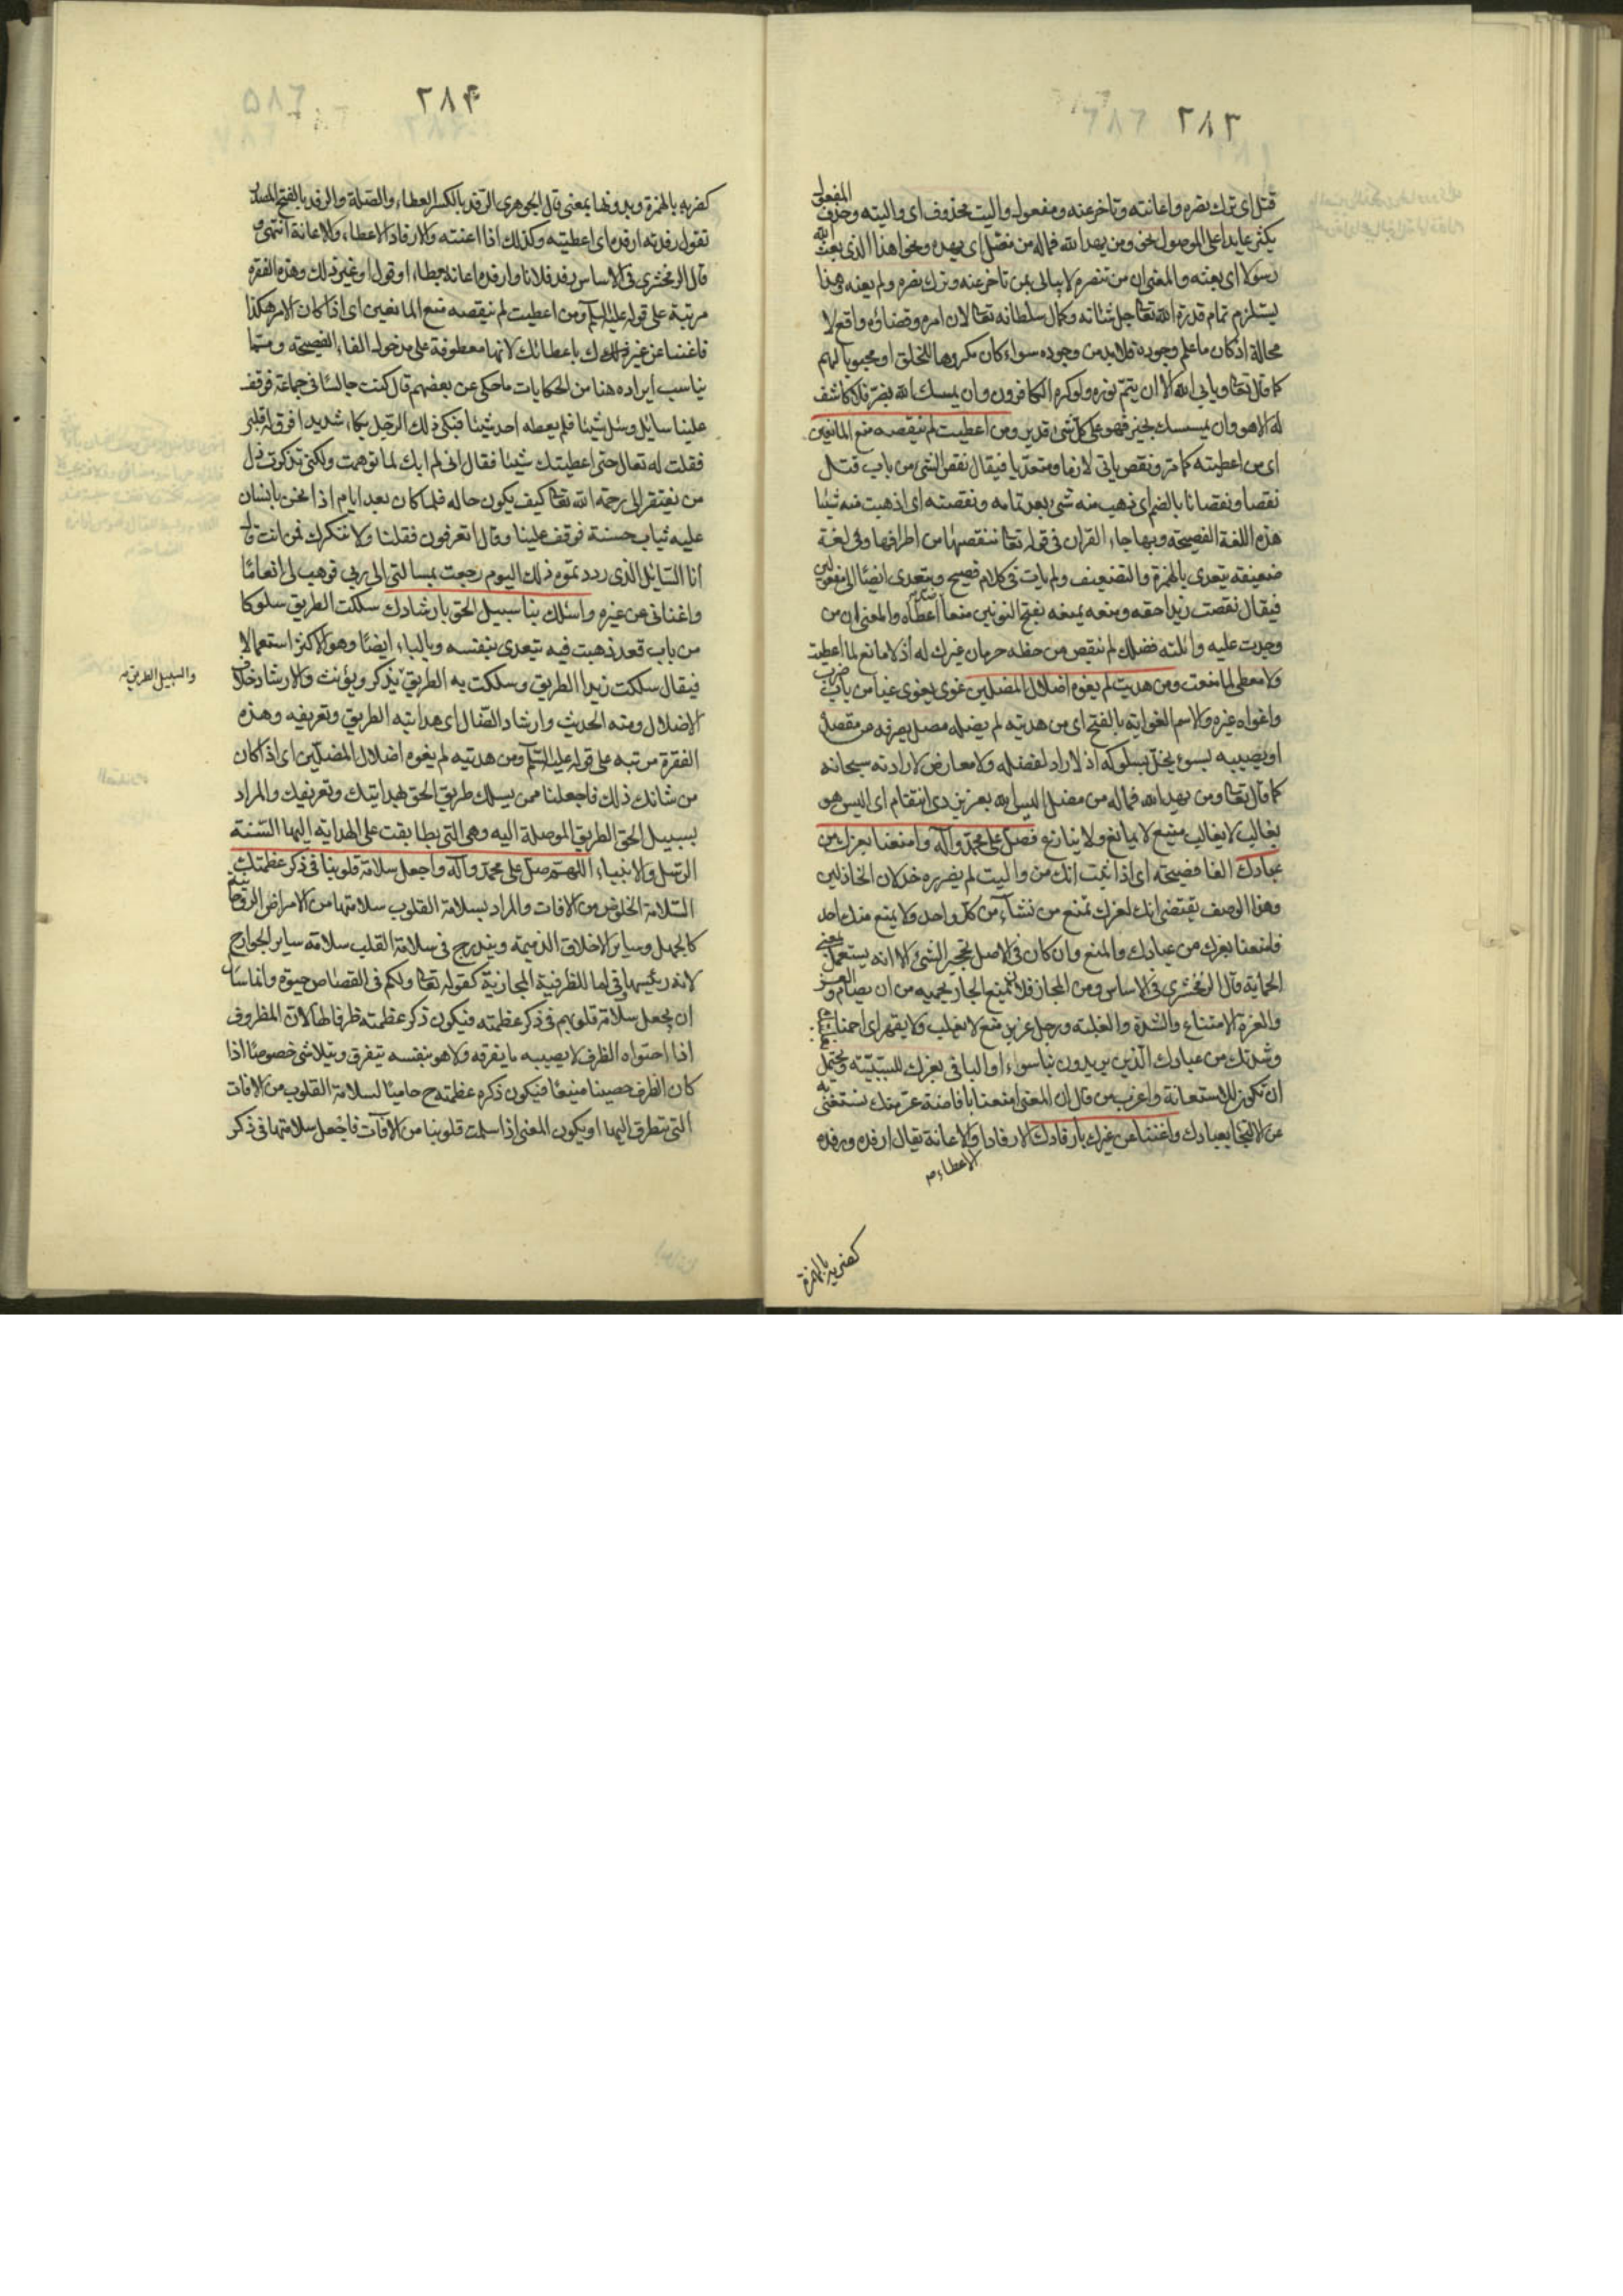 ٢٨٣
قتل اى ترك نصره واعانته وتاخر عنه ومفعول واليت محذوف اى واليته وحذف المفعول
يكثر عايدا على الموصول نحو ومن يهد الله فماله من مضل اى يهده ونحو اهذا الذى بعث الله
رسولا اى بعثه والمعنى ان من تنصره لا يبالى بمن تاخر عنه وترك نصره ولم يعنه هذا
يستلزم تمام قدرة الله تعا جل شانه وكمال سلطانه تعا لان امره وقضاؤه واقع لا
محالة اذ كان ما علم وجوده فلا بد من وجوده سواء كان مكروها للخلق او محبوبا لهم
كما قال تعا ويابى الله الا ان يتم نوره ولو كره الكافرون وان يمسسك الله بضر فلا كاشف
له الا هو وان يمسسك بخير فهو على كل شئ قدير ومن اعطيت لم ينقصه منع المانعين
اى من اعطيته كما مر ونقص ياتى لازما ومتعديا فيقال نقص الشى من باب قتل
نقصا ونقصانا بالضم اى ذهب منه شى بعد تمامه ونقصته اى اذهبت منه شيئا
هذه اللغة الفصيحة وبها جاء القران فى قوله تعا ننقصها من اطرافها وفى لغة
ضعيفة يتعدى بالهمزة والتضعيف ولم يات فى كلام فصيح ويتعدى ايضا الى مفعولين
فيقال نقصت زيدا حقه ومنعه يمنعه بفتح النونين منعا اعطاه والمعنى ان من
وجدت عليه وانلته فضلك لم ينقص من حظه حرمان غيرك له اذ لا مانع لما اعطيت
ولا معطى لما منعت ومن هديت لم يغوه اضلال المضلين غوى يغوى غيا من باب ضرب
واغواه غيره والاسم الغواية بالفتح اى من هديته لم يضله مضل يصرفه من مقصد
او يصيبه بسوء يخل بسلوكه اذ لا راد لفضله ولا معارض لارادته سبحانه
كما قال تعا ومن يهد الله فماله من مضل اليس الله بعزيز ذى انتقام اى اليس هو
بغالب لا يغالب منيع لا يمانع ولا ينازع فصل على محمد وآله وامنعنا بعزك من
عبادك الفا فصيحة اى اذا ثبت انك من واليت لم يضرره خذلان الخاذلين
وهذا الوصف يقتضى انك لعزك تمنع من تشاء من كل واحد ولا يمنع منك احد
فامنعنا بعزك من عبادك والمنع وان كان فى الاصل تحجير الشئ الا انه يستعمل بمعنى
الحماية قال الزمخشرى فى الاساس ومن المجاز فلان يمنع الجار يحميه من ان يضام
والعزة الامتناع والشدة والغلبة ورجل عزيز منيع لا يغلب ولا يقهر اى احمنا
وشدتك من عبادك الذين يريدون بنا سواء او البا فى بعزك للسببية ويحتمل
ان تكون للاستعانة واغرب من قال ان المعنى امنعنا بافاضة عز منك نستغنى به
عن الالتجا بعبادك واغننا عن غيرك بارفادك الارفاد والاعانة يقال ارفده ورفده
الاعطاء م
كضربه بالهمزة
٢٨۴
كضربه بالهمزة وبدونها بمعنى قال الجوهرى الرفد بالكسر العطاء والصلة والرفد بالفتح المصدر
تقول رفدته ارفده اى اعطيته وكذلك اذا اعنته والارفاد الاعطاء والاعانة انتهى و
قال الزمخشرى فى الاساس رفد فلانا وارفده اعانه بعطاء او قول او غير ذلك وهذه الفقره
مرتبة على قوله عليه السلم ومن اعطيت لم ينقصه منع المانعين اى اذا كان الامر هكذا
فاغننا عن غيرك باعطائك لانها معطوفة على مدخول الفاء الفصيحة ومما
يناسب ايراده هنا من الحكايات ما حكى عن بعضهم قال كنت جالسا فى جماعة فوقف
علينا سايل وسئل شيئا فلم يعطه احد شيئا فبكى ذلك الرجل بكاء شديدا
فقلت له تعال حتى اعطيتك شيئا فقال انى لم ابك لما توهمت ولكنى تذكرت ذل
من يفتقر الى رحمة الله تعا كيف يكون حاله فلما كان بعد ايام اذا نحن بانسان
عليه ثياب حسنة فوقف علينا وقال اتعرفون فقلنا ولا ننكرك فمن انت قال
انا السايل الذى رددتموه ذلك اليوم رجعت بمسالتى الى ربى فوهب لى انعاما
واغنانى عن غيره واسلك بنا سبيل الحق بارشادك سلكت الطريق سلوكا
من باب قعد ذهبت فيه يتعدى بنفسه وبالباء ايضا وهو الاكثر استعمالا
فيقال سلكت زيدا الطريق وسلكت به الطريق يذكر ويؤنث والارشاد خلاف
والسبيل الطريق م
الاضلال ومنه الحديث وارشاد الضال اى هدايته الطريق وتعريفه وهذه
الفقرة مرتبه على قوله عليه السلم ومن هديته لم يغوه اضلال المضلين اى اذا كان
من شانك ذلك فاجعلنا ممن يسلك طريق الحق بهدايتك وتعريفك والمراد
بسبيل الحق الطريق الموصلة اليه وهى التى تطابقت على الهداية اليها السنة
الرسل والانبياء اللهم صل على محمد وآله واجعل سلامة قلوبنا فى ذكر عظمتك
السلامة الخلوص من الافات والمراد بسلامة القلوب سلامتها من الامراض الروحانية
كالجهل وساير الاخلاق الذميمة ويندرج فى سلامة القلب سلامة ساير الجوارح
لانه رئيسها وفى اما للظرفية المجازية كقوله تعا ولكم فى القصاص حيوة
ان يجعل سلامة قلوبهم فى ذكر عظمته فيكون ذكر عظمته ظرفا لها لان المظروف
اذا احتواه الظرف لا يصيبه ما يفرقه ولا هو بنفسه يتفرق ويتلاشى خصوصا اذا
كان الظرف حصينا منيعا فيكون ذكره عظمته ح حاميا لسلامة القلوب من الافات
التى يتطرق اليها او يكون المعنى اذا سلمت قلوبنا من الافات فاجعل سلامتها فى ذكر